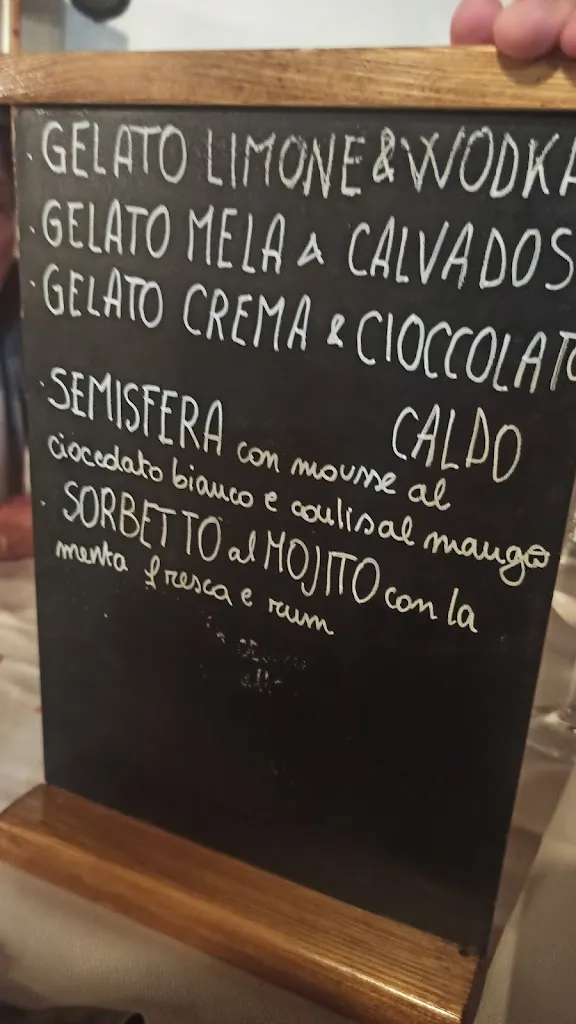 GELATO LIMONE & WODKA
GELATO MELA & CALVADOS
GELATO CREMA & CIOCCOLATO
CALDO
SEMISFERA con mousse al
cioccolato bianco e coulis al mango
SORBETTO al MOJITO con la
menta fresca e rum